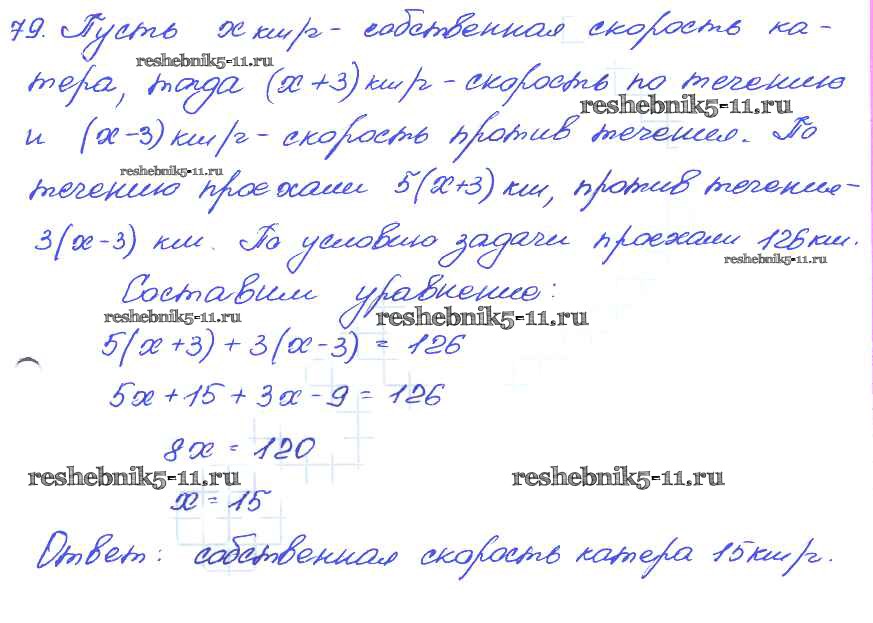 79. Пусть x км/ч - собственная скорость ка-
reshebnik5-11.ru
тера, тогда (x+3) км/ч - скорость по течению
reshebnik5-11.ru
и (x-3) км/ч - скорость против течения. По
reshebnik5-11.ru
течению проехали 5(x+3) км, против течения -
3(x-3) км. По условию задачи проехали 126 км.
reshebnik5-11.ru
Составим уравнение:
reshebnik5-11.ru reshebnik5-11.ru
5(x+3) + 3(x-3) = 126
5x + 15 + 3x - 9 = 126
8x = 120
reshebnik5-11.ru reshebnik5-11.ru
x = 15
Ответ: собственная скорость катера 15 км/ч.